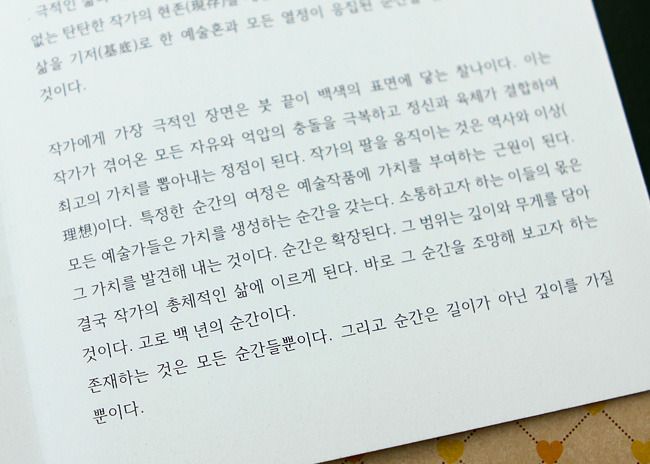 . 극적인
없는 탄탄한 작가의 현존(現存)을
삶을 기저(基底)로 한 예술혼과 모든 열정이 응집된 순간을
것이다.
작가에게 가장 극적인 장면은 붓 끝이 백색의 표면에 닿는 찰나이다. 이는
작가가 겪어온 모든 자유와 억압의 충돌을 극복하고 정신과 육체가 결합하여
최고의 가치를 뽑아내는 정점이 된다. 작가의 팔을 움직이는 것은 역사와 이상(
理想)이다. 특정한 순간의 여정은 예술작품에 가치를 부여하는 근원이 된다.
모든 예술가들은 가치를 생성하는 순간을 갖는다. 소통하고자 하는 이들의 몫은
그 가치를 발견해 내는 것이다. 순간은 확장된다. 그 범위는 깊이와 무게를 담아
결국 작가의 총체적인 삶에 이르게 된다. 바로 그 순간을 조망해 보고자 하는
것이다. 고로 백 년의 순간이다.
존재하는 것은 모든 순간들뿐이다. 그리고 순간은 길이가 아닌 깊이를 가질
뿐이다.